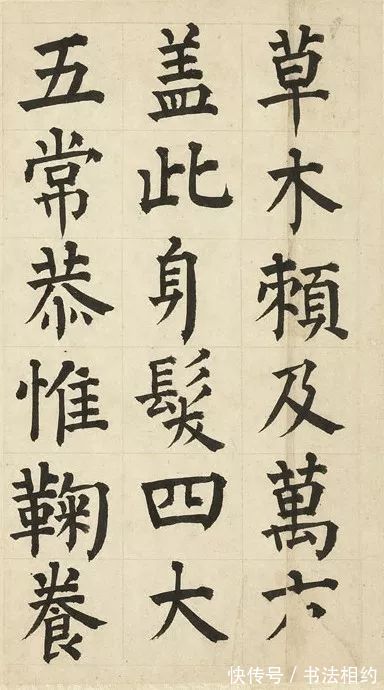 草木頼及萬方
盖此身髮四大
五常恭惟鞠養
快传号/书法相约